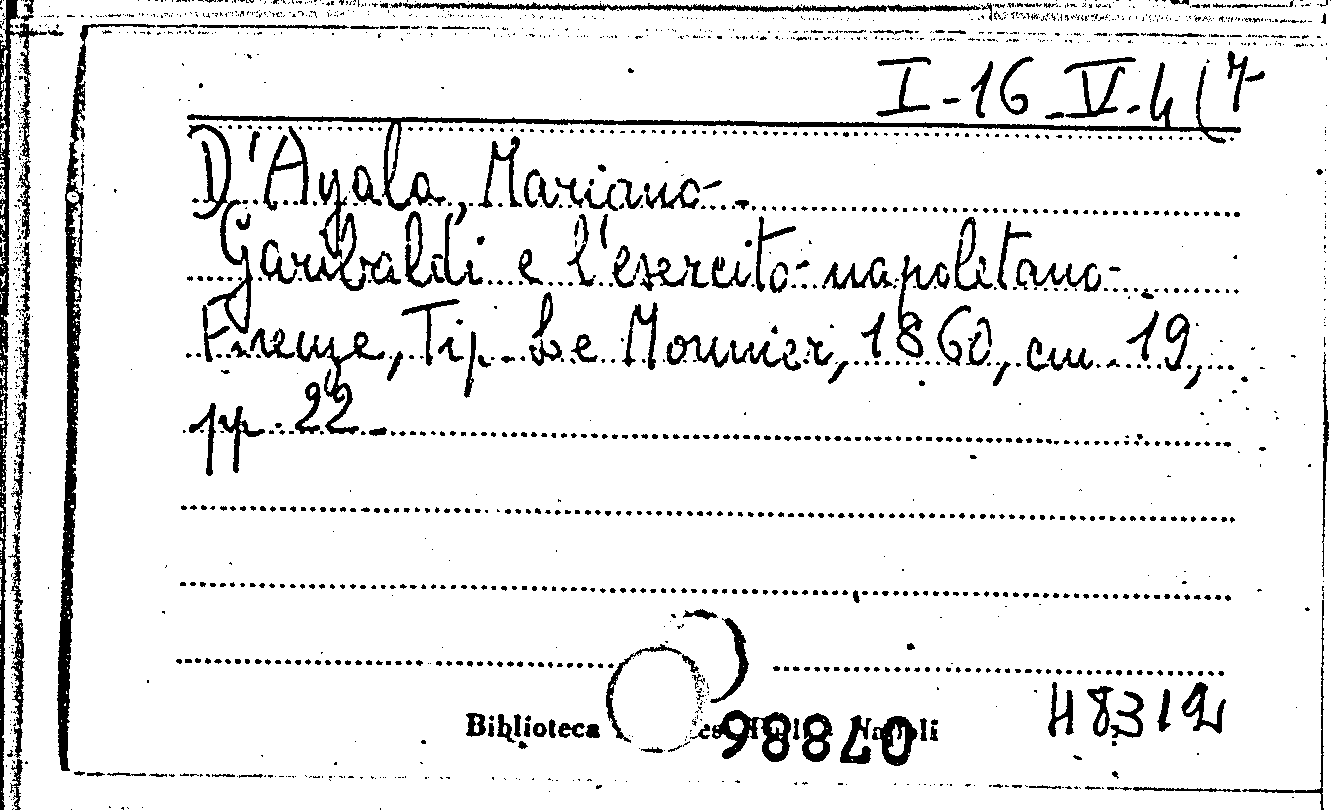 I-16-IV-4(7
D'Ayala, Mariano-.
Garibaldi e l'esercito napoletano-
Firenze, Tip. Le Monnier, 1860, cm. 19,
pp. 22-
Biblioteca Napoli
48312